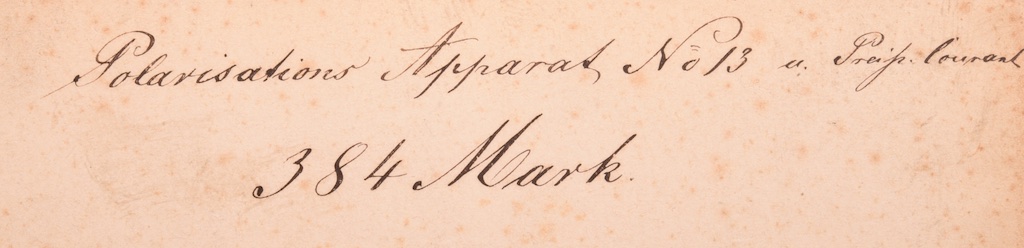 Polarisations Apparat No 13 u. Preiss. Courant
384 Mark.